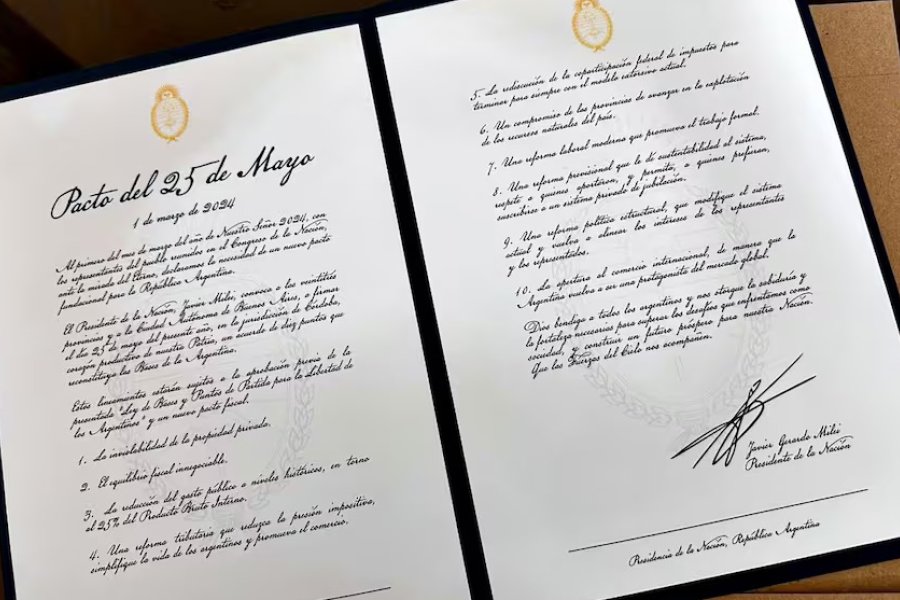 Pacto del 25 de Mayo
1 de marzo de 2024
Al primero del mes de marzo del año de Nuestro Señor 2024, con
los representantes del pueblo reunidos en el Congreso de la Nación,
ante la mirada del Eterno, declaramos la necesidad de un nuevo pacto
fundacional para la República Argentina.
El Presidente de la Nación, Javier Milei, convoca a las veintitrés
provincias y a la Ciudad Autónoma de Buenos Aires, a firmar
el día 25 de mayo del presente año, en la jurisdicción de Córdoba,
corazón productivo de nuestra Patria, un acuerdo de diez puntos que
reconstituya las Bases de la Argentina.
Estos lineamientos estarán sujetos a la aprobación previa de la
presentada "Ley de Bases y Puntos de Partida para la Libertad de
los Argentinos" y un nuevo pacto fiscal.
1. La inviolabilidad de la propiedad privada.
2. El equilibrio fiscal innegociable.
3. La reducción del gasto público a niveles históricos, en torno
al 25% del Producto Bruto Interno.
4. Una reforma tributaria que reduzca la presión impositiva,
simplifique la vida de los argentinos y promueva el comercio.
5. La rediscusión de la coparticipación federal de impuestos para
terminar para siempre con el modelo extorsivo actual.
6. Un compromiso de las provincias de avanzar en la explotación
de los recursos naturales del país.
7. Una reforma laboral moderna que promueva el trabajo formal.
8. Una reforma previsional que le dé sustentabilidad al sistema,
respete a quienes aportaron, y permita, a quienes prefieran,
suscribirse a un sistema privado de jubilación.
9. Una reforma política estructural, que modifique el sistema
actual y vuelva a alinear los intereses de los representantes
y los representados.
10. La apertura al comercio internacional, de manera que la
Argentina vuelva a ser una protagonista del mercado global.
Dios bendiga a todos los argentinos y nos otorgue la sabiduría y
la fortaleza necesarias para superar los desafíos que enfrentamos como
sociedad, y construir un futuro próspero para nuestra Nación.
Que las Fuerzas del Cielo nos acompañen.
Javier Gerardo Milei
Presidente de la Nación
Presidencia de la Nación, República Argentina